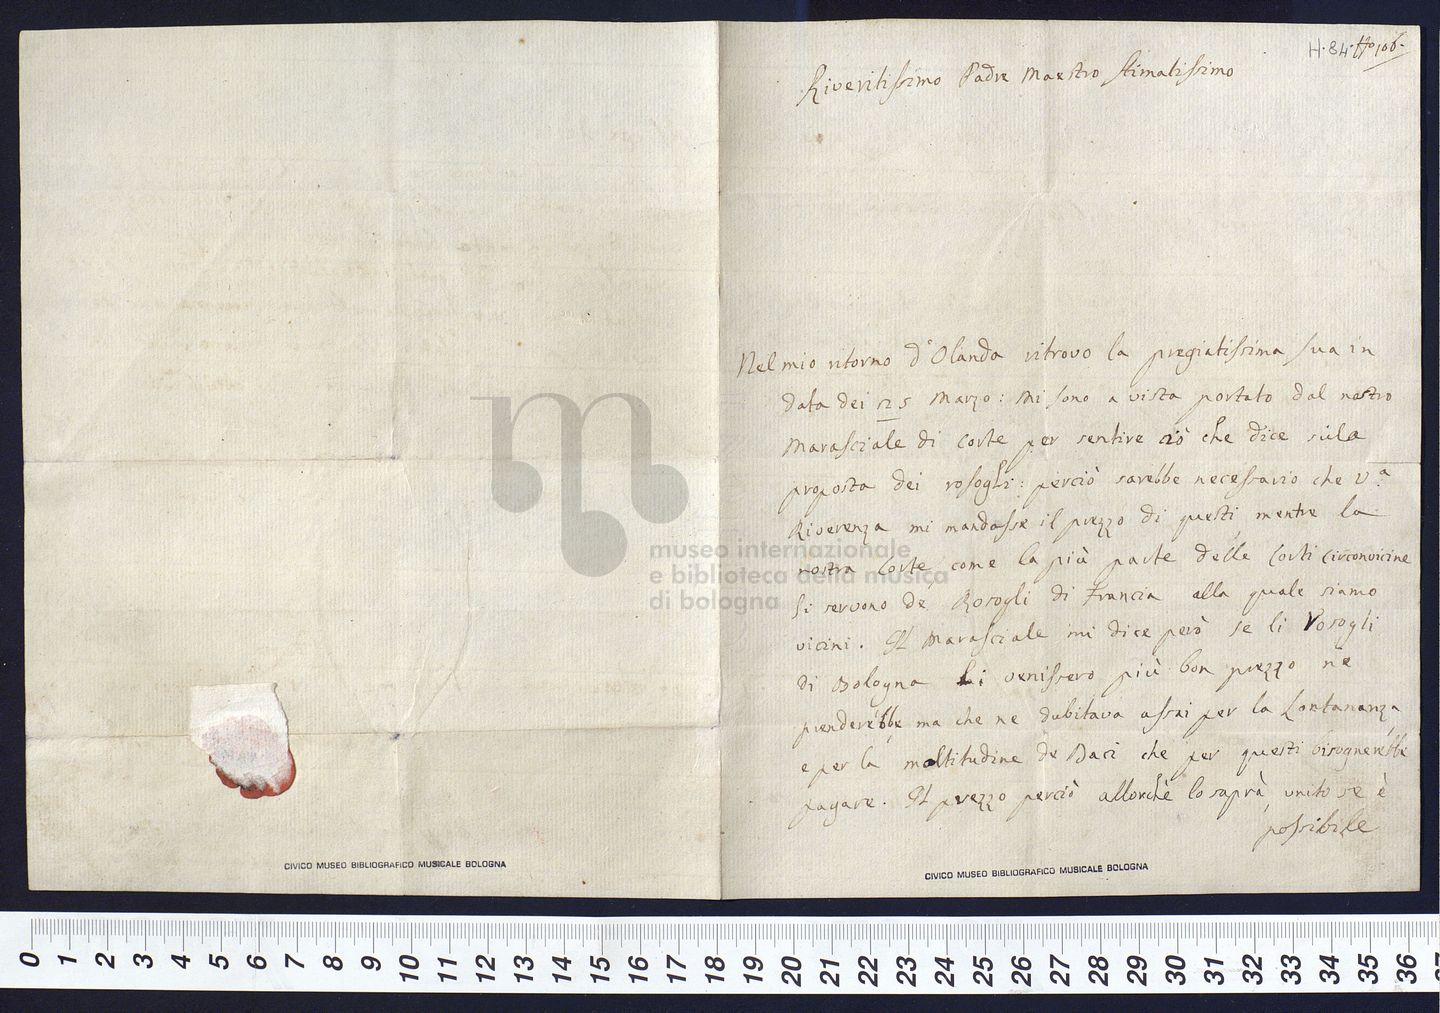 H. 84. Ho 106.
Riveritissimo Padre Maestro Stimatissimo
Nel mio ritorno d'Olanda ritrovo la pregiatissima sua in
data dei 25 Marzo: Mi sono a vista portato dal nostro
Marasciale di Corte per sentire ciò che dice sula
proposta dei rosogli: perciò sarebbe necessario che V.a
Riverenza mi mandasse il prezzo di questi mentre la
nostra Corte, come la più parte delle Corti circonvicine
si servono de Rosogli di Francia alla quale siamo
vicini. Il Marasciale mi dice però se li Rosogli
di Bologna li venissero più bon prezzo ne
prenderebbe, ma che ne dubitava assai per la Lontananza
e per la moltitudine de Daci che per questi bisognerebbe
pagare. Il prezzo perciò allorchè lo saprà, unito se è
possibile
CIVICO MUSEO BIBLIOGRAFICO MUSICALE BOLOGNA
CIVICO MUSEO BIBLIOGRAFICO MUSICALE BOLOGNA
museo internazionale
e biblioteca della musica
di bologna
0 1 2 3 4 5 6 7 8 9 10 11 12 13 14 15 16 17 18 19 20 21 22 23 24 25 26 27 28 29 30 31 32 33 34 35 36